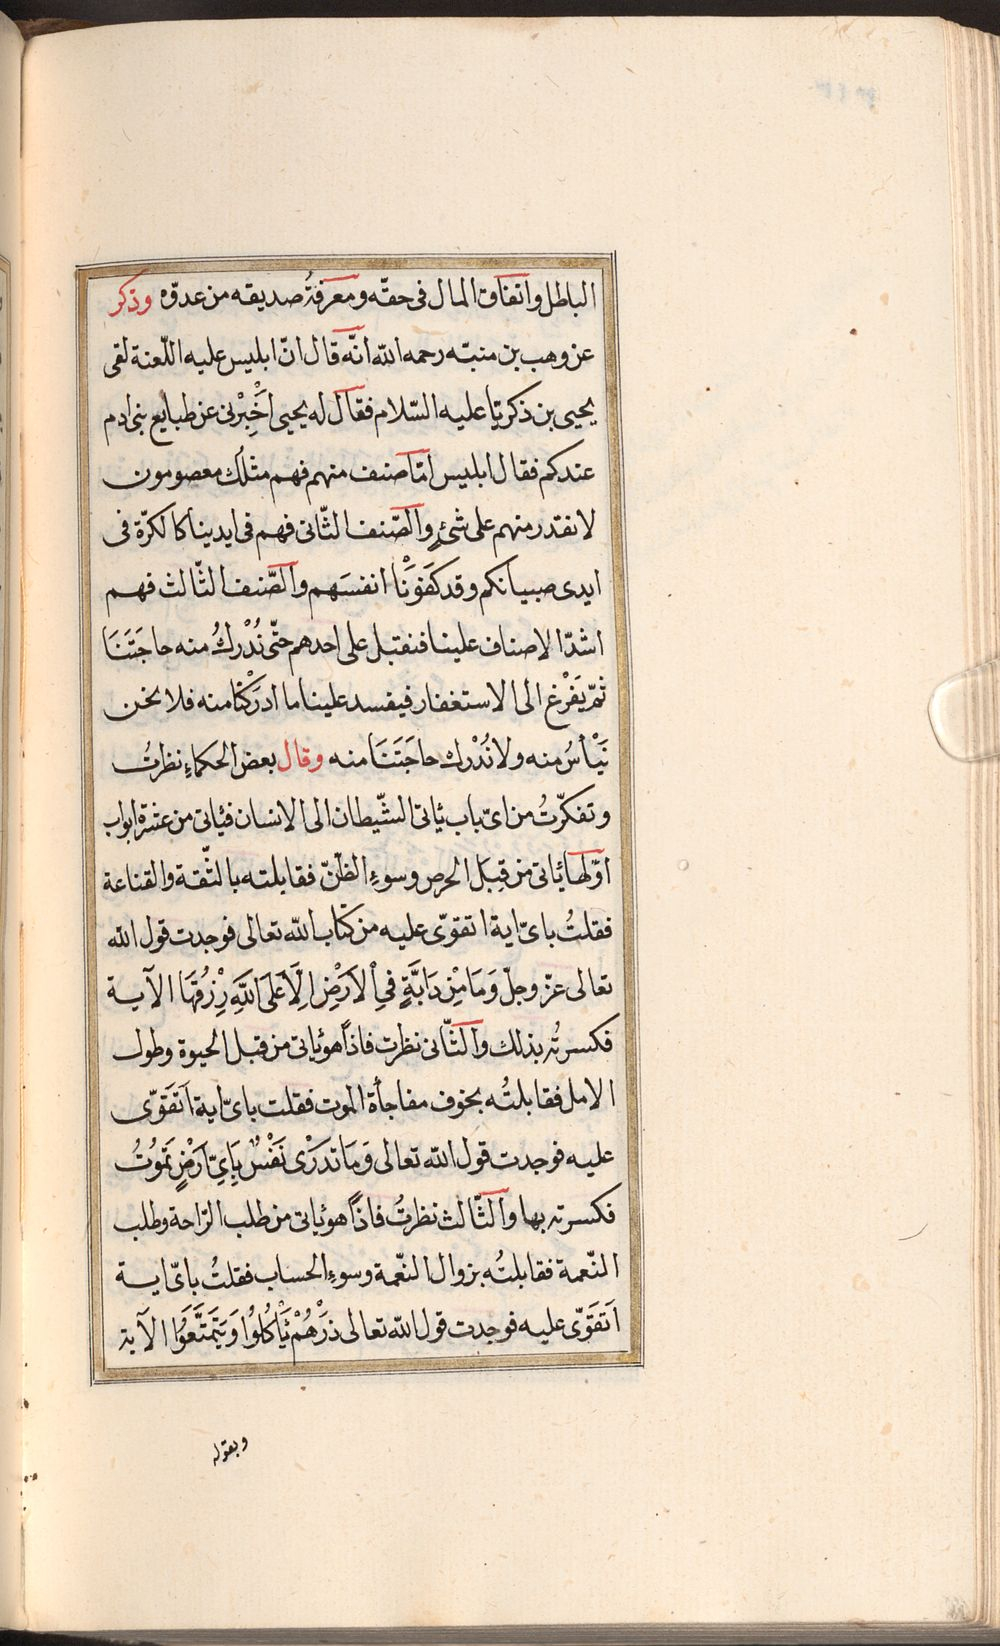 الباطل وانفاق المال فى حقّه ومعرفةُ صديقه من عدوّه وذكر
عن وهب بن منبّه رحمه الله انّه قال انّ ابليس عليه اللّعنة لقى
يحيى بن ذكريّا عليه السّلام فقال له يحيى اَخْبِرْنى عن طبايع بنى ادم
عندكم فقال ابليس امّا صنف منهم فهم مثلُك معصومون
لا نقدر منهم على شئٍ والصّنف الثّانى فهم فى ايدينا كالكرّة فى
ايدى صبيانكم وقد كَفَوْنَا انفسَهم والصّنف الثّالث فهم
اشدّ الاصناف علينا فنقبل على احدهم حتّى نُدْرِكُ منه حاجَتَنَا
ثمّ يَفْرغ الى الاستغفار فيفسد علينا ما ادرَكْنا منه فلا نحن
نَيْأسُ منه ولا نُدْرِك حاجَتَنَا منه وقال بعض الحكماءِ نظرتُ
وتفكّرتُ من اىّ باب ياتى الشّيطان الى الانسان فياتى من عشرة ابواب
اوّلها ياتى من قِبَل الحرص وسوءِ الظنّ فقابلته بالثّقة والقناعة
فقلتُ باىّ اية اتقوّى عليه من كتاب الله تعالى فوجدت قول الله
تعالى عزّ وجلّ وَمَا مِنْ دَابَّةٍ فِي اْلاَرْضِ اِلَّا عَلَى اللّٰهِ رِزْقُهَا الآية
فكسرتُه بذلك والثّانى نظرت فاذًا هو ياتى من قبل الحيوة وطول
الامل فقابلتُه بخوف مفاجأة الموت فقلت باىّ اية اَتَقَوّى
عليه فوجدت قول الله تعالى وَمَا تَدْرِى نَفْسٌ بِاَىِّ اَرْضٍ تَمُوتُ
فكسرته بها والثّالث نظرتُ فاذًا هو ياتى من طلب الرّاحة وطلب
النّعمة فقابلتُه بزوال النّعمة وسوءِ الحساب فقلتُ باىّ اية
اَتَقَوّى عليه فوجدت قول الله تعالى ذَرْهُمْ يَأْكُلُوا وَيَتَمَتَّعُوا الآية
وبقوله